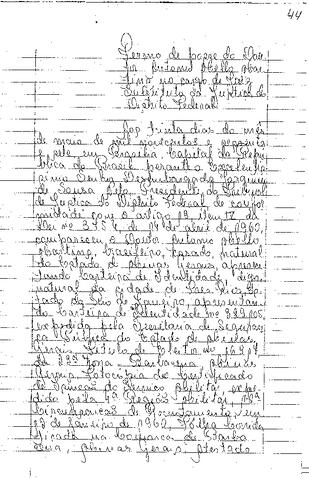 44
Termo de posse do Dou-
tor Antonio Mello Mar-
tins no cargo de Juiz
Substituto da Justiça do
Distrito Federal
Aos trinta dias do mês
de maio de mil novecentos e sessenta
e sete em Brasília, Capital da Repú-
blica do Brasil, perante o Excelentís-
simo Senhor Desembargador
de Sousa Neto, Presidente do Tribunal
de Justiça do Distrito Federal, de confor-
midade com o artigo 19, item IV, da
Lei nº 3.754, de 14 de abril de 1960,
compareceu o Doutor Antonio Mello
Martins, brasileiro, casado, natural
do Estado de Minas Gerais, apresen-
tando Carteira de Identidade, digo,
natural da cidade de Es-
tado do Rio de Janeiro, apresentan-
do Carteira de Identidade nº
expedida pela Secretaria de Seguran-
ça Pública do Estado de Minas
Gerais, Título de Eleitor nº
da 23ª Zona, Barbacena, Minas
Gerais, Fotocópia do Certificado
de Isenção do Serviço Militar, expe-
dido pela 4ª Região Militar,
Circunscrição de Recrutamento, em
de Janeiro de 1962, Folha Corrida
na Comarca de Barba-
cena, Minas Gerais, Atestado